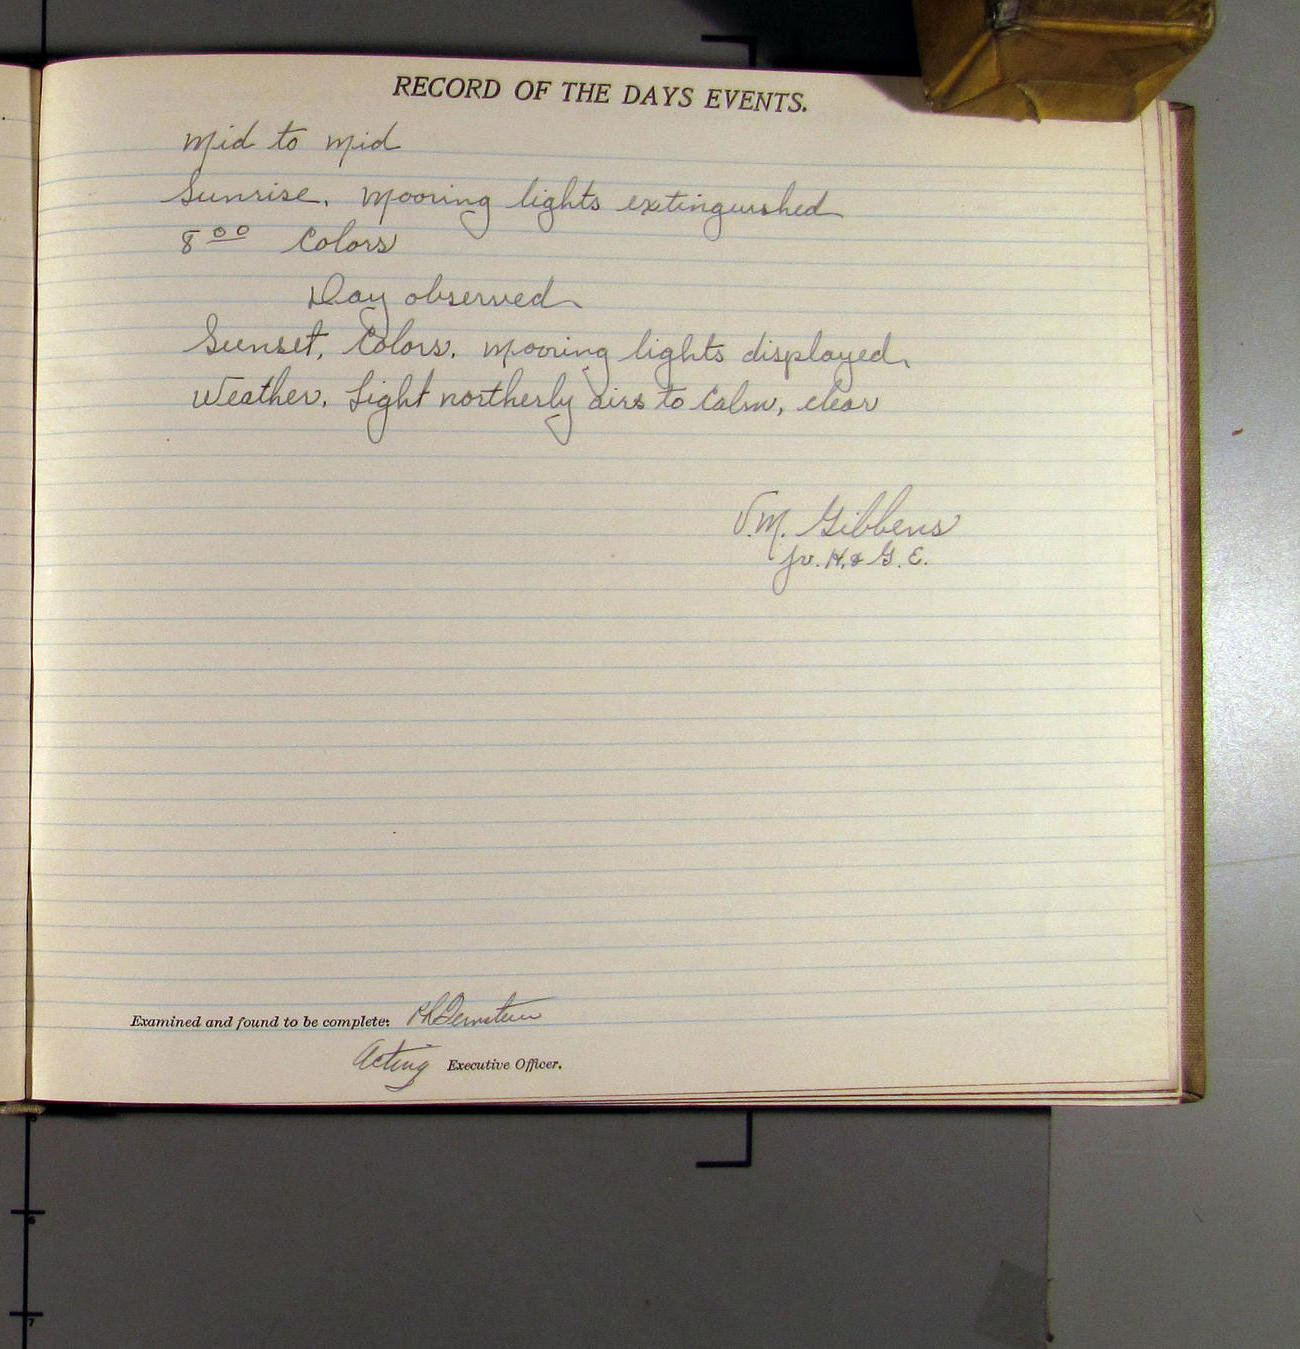 RECORD OF THE DAYS EVENTS.
Mid to Mid
Sunrise. Mooring lights extinguished
8 00 Colors
Day observed
Sunset, Colors. Mooring lights displayed.
Weather. Light northerly airs to Calm, clear
V.M. Gibbens
Jr. H. & G. E.
Examined and found to be complete:
Acting Executive Officer.
6
7